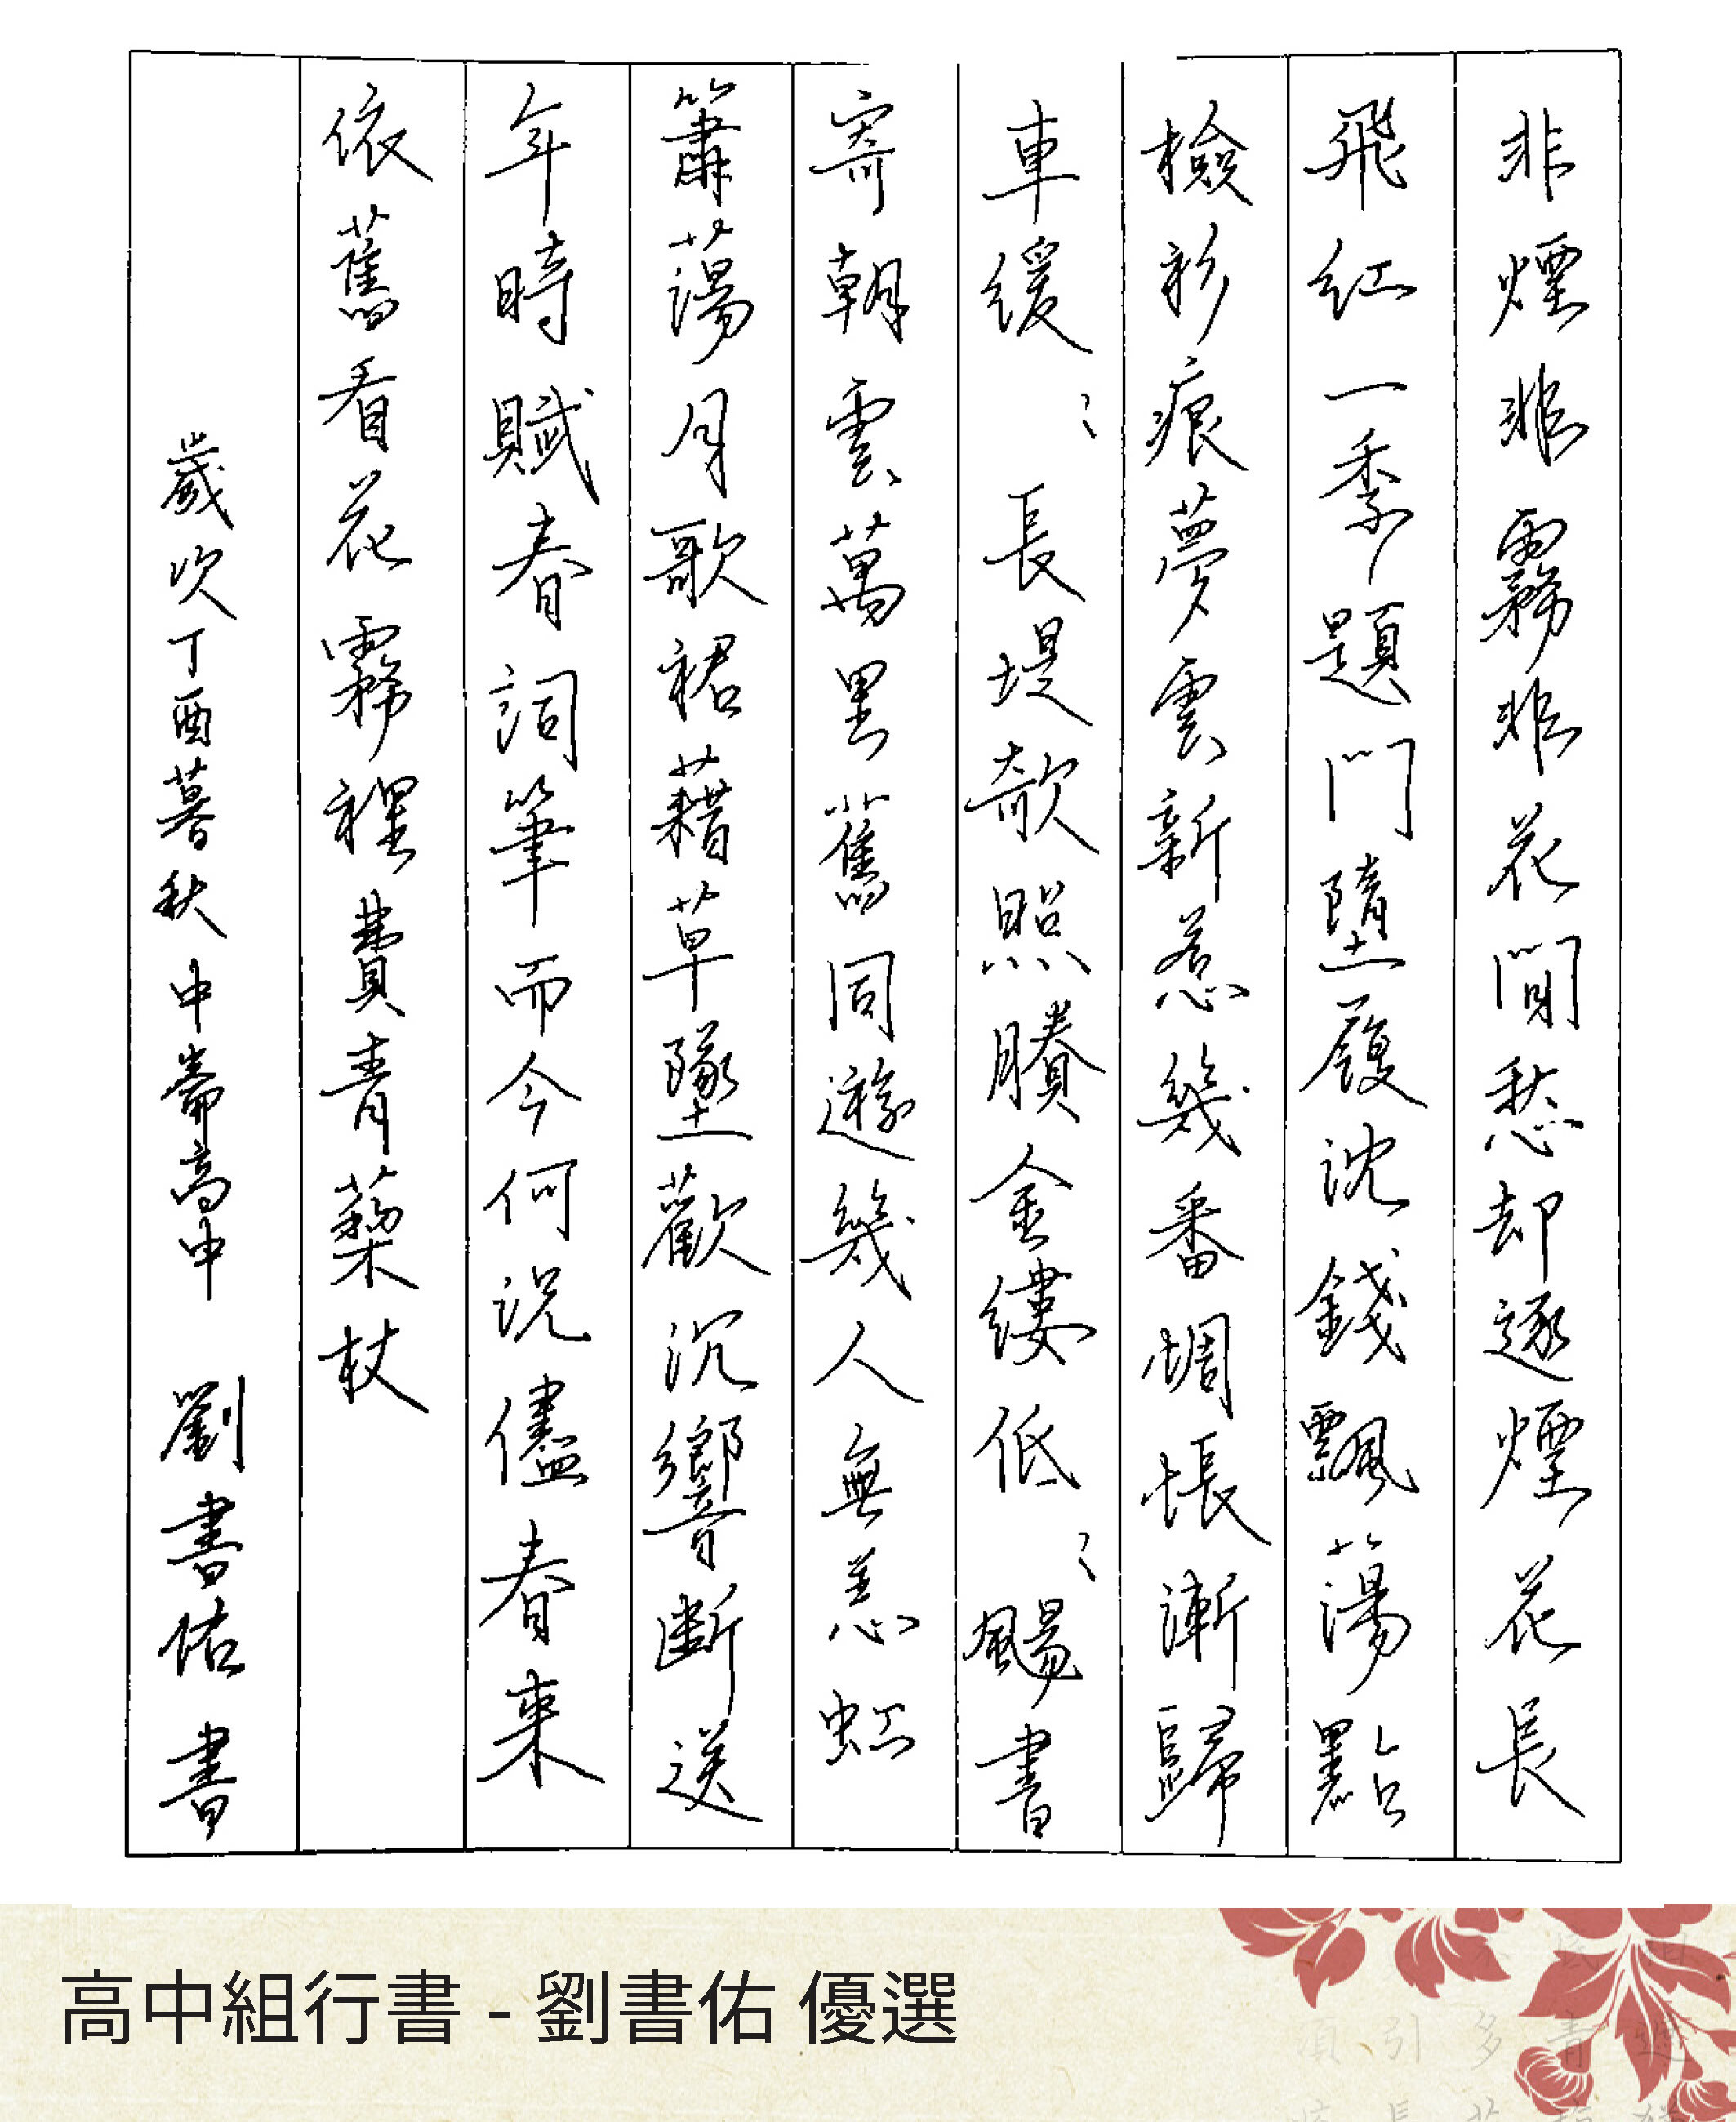 非煙非霧非花間愁却逐煙花長
飛紅一季題門墮履沈錢飄蕩點
檢衫痕夢雲新惹幾番惆悵漸歸
車緩〻長堤欹照賸金縷低〻颺書
寄朝雲萬里舊同遊幾人無恙虹
簫蕩月歌裙藉草墜歡沉響斷送
年時賦春詞筆而今何況儘春來
依舊看花霧裡費青藜杖
歲次丁酉暮秋中崙高中 劉書佑 書
高中組行書 - 劉書佑 優選